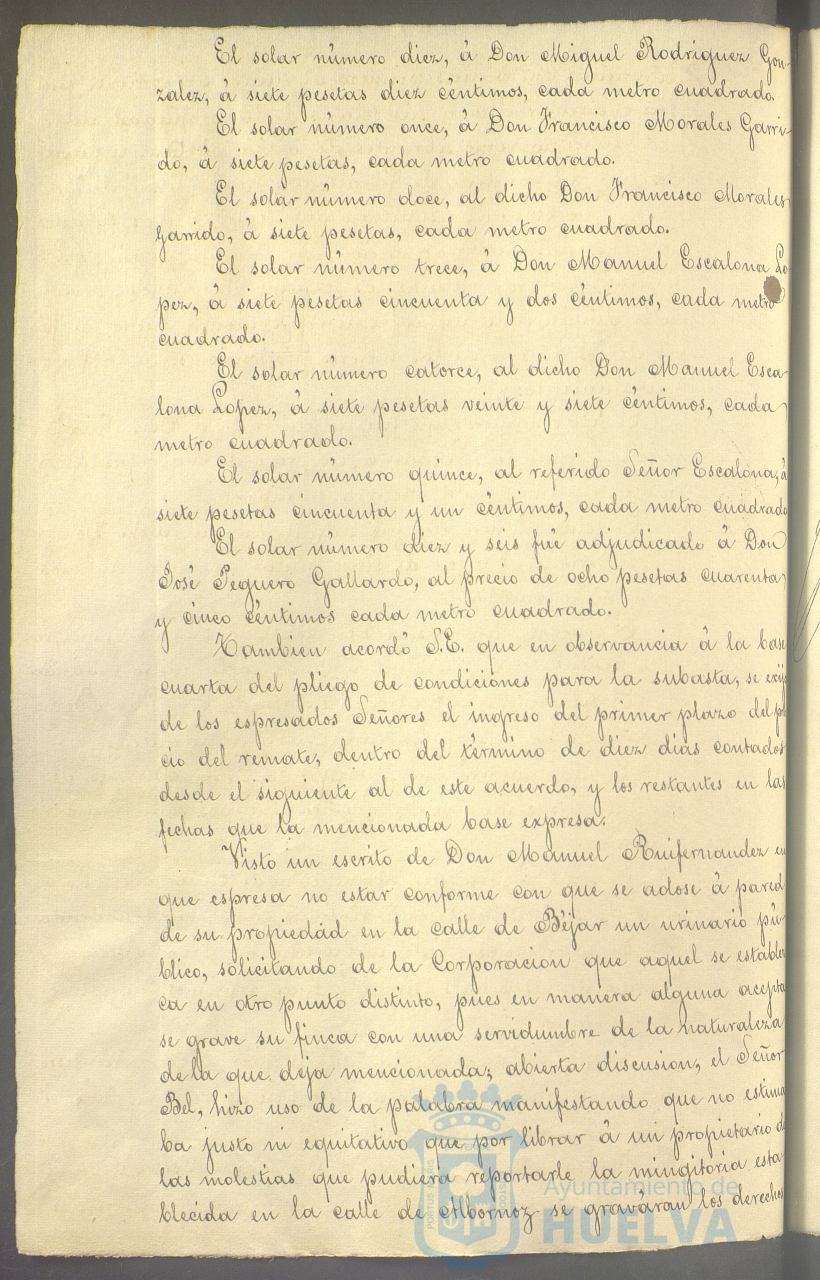 El solar número diez, á Don Miguel Rodriguez Gon-
zalez, á siete pesetas diez céntimos, cada metro cuadrado.
El solar número once, á Don Francisco Morales Garri-
do, á siete pesetas, cada metro cuadrado.
El solar número doce, al dicho Don Francisco Morales
Garrido, á siete pesetas, cada metro cuadrado.
El solar número trece, á Don Manuel Escalona Lo-
pez, á siete pesetas cincuenta y dos céntimos, cada metro
cuadrado.
El solar número catorce, al dicho Don Manuel Esca-
lona Lopez, á siete pesetas veinte y siete céntimos, cada
metro cuadrado.
El solar número quince, al referido Señor Escalona, á
siete pesetas cincuenta y un céntimos, cada metro cuadrado
El solar número diez y seis fué adjudicado á Don
José Peguero Gallardo, al precio de ocho pesetas cuarenta
y cinco céntimos cada metro cuadrado.
Tambien acordó S.E. que en observancia á la base
cuarta del pliego de condiciónes para la subasta, se exija
de los espresados Señores el ingreso del primer plazo del pre
cio del remate, dentro del término de diez dias contados
desde el siguiente al de este acuerdo, y los restantes en las
fechas que la mencionada base expresa.
Visto un escrito de Don Manuel Ruifernandez en
que espresa no estar conforme con que se adose á pared
de su propiedad en la calle de Béjar un urinario pú-
blico, solicitando de la Corporacion que aquel se establez
ca en otro punto distinto, pues en manera alguna acepta
se grave su finca con una servidumbre de la naturaleza
de la que deja mencionada; abierta discusion, el Señor
Bel, hizo uso de la palabra manifestando que no estima
ba justo ni equitativo que por librar á un propietario de
las molestias que pudiera reportarle la mingitoria esta-
blecida en la calle de Albornoz se graváran los derechos
Ayuntamiento de
HUELVA